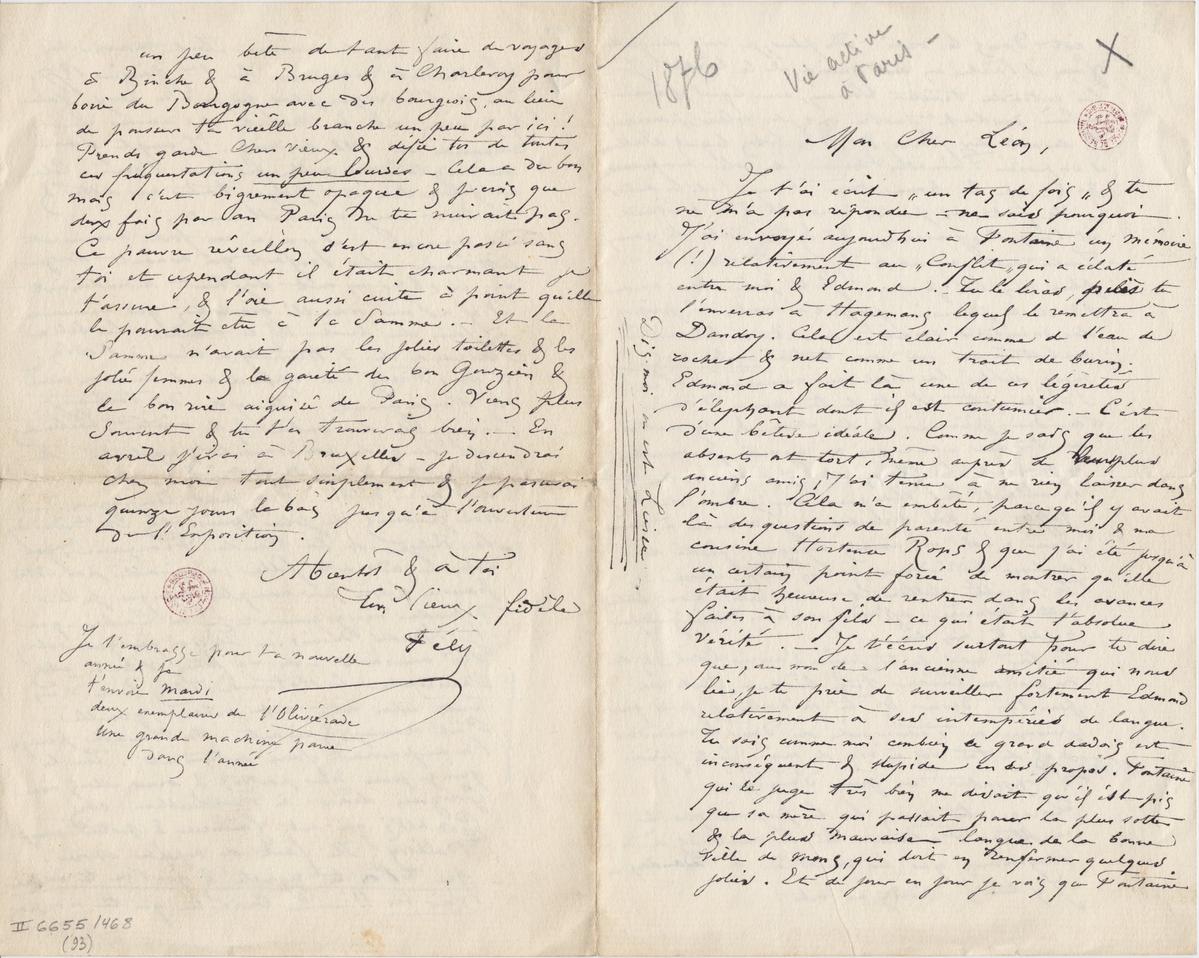 1876
Vie active
à Paris —
X
Mon Cher Léon,
Je t'ai écrit „un tas de fois„ & tu
ne m'a pas répondu — ne sais pourquoi.
J'ai envoyés aujourdhui à Fontaine un mémoire
(!) relativement au „Conflit„ qui a éclaté
entre moi & Edmond. — Tu le liras, puis tu
l'enverras à Hagemans lequel le remettra à
Dandoy. Cela est clair comme de l'eau de
roches & net comme un trait de burin.
Edmond a fait là une de ces légèretés
d'éléphant dont il est coutumier. — C'est
d'une bêtise idéale. Comme je sais que les
absents ont tort, même auprès de leurs plus
anciens amis, j'ai tenu à ne rien laisser dans
l'ombre. Cela m'a embêté, parcequ'il y avait
là des questions de parenté entre moi & ma
cousine Hortense Rops & que j'ai été jusqu'à
un certain point forcé de montrer qu'elle
était heureuse de rentrer dans les avances
faites à son fils — ce qui était l'absolue
vérité. — Je t'écris surtout pour te dire
que, au nom de l'ancienne amitié qui nous
lie, je te prie de surveiller fortement Edmond
relativement à ses intempéries de langue.
Tu sais comme moi combien ce grand dadais est
inconséquent & stupide en ses propos. Fontaine
qui le juge très bien me disait qu'il est pis
que sa mère qui passait pour la plus sotte
& la plus mauvaise langue de la bonne
ville de Mons, qui doit en renfermer quelques
jolies. Et de jour en jour je vois que Fontaine
Dis-moi où est
un peu bête de tant faire de voyages
à Binche & à Bruges & à Charleroy pour
boire du Bourgogne avec des bourgeois, au lieu
de pousser ta vieille branche un peu par ici!
Prends garde cher vieux & défie toi de toutes
ces fréquentations un peu lourdes — Cela a du bon
mais c'est bigrement opaque & je crois que
deux fois par an Paris ne te nuirait pas.
Ce pauvre réveillon s'est encore passé sans
toi et cependant il était charmant je
t'assure, & l'oie aussi cuite à point qu'elle
le pourrait être à la Samme. — Et la
Samme n'avait pas les jolies toilettes & les
jolies femmes & la gaieté du bon Gouzien &
le bon rire aiguisé de Paris. Viens plus
souvent & tu t'en trouveras bien. — En
avril j'irai à Bruxelles — je descendrai
chez moi tout simplement & je passerai
quinze jours la bas jusqu'à l'ouverture
de l'Exposition.
A bientôt & à Toi
Ton vieux fidèle
Fély
Je t'embrasse pour la nouvelle
année & je
t'envoie mardi
deux exemplaires de l'Oliviérade
une grande machine parue
dans l'année
II 6655/468
(93)